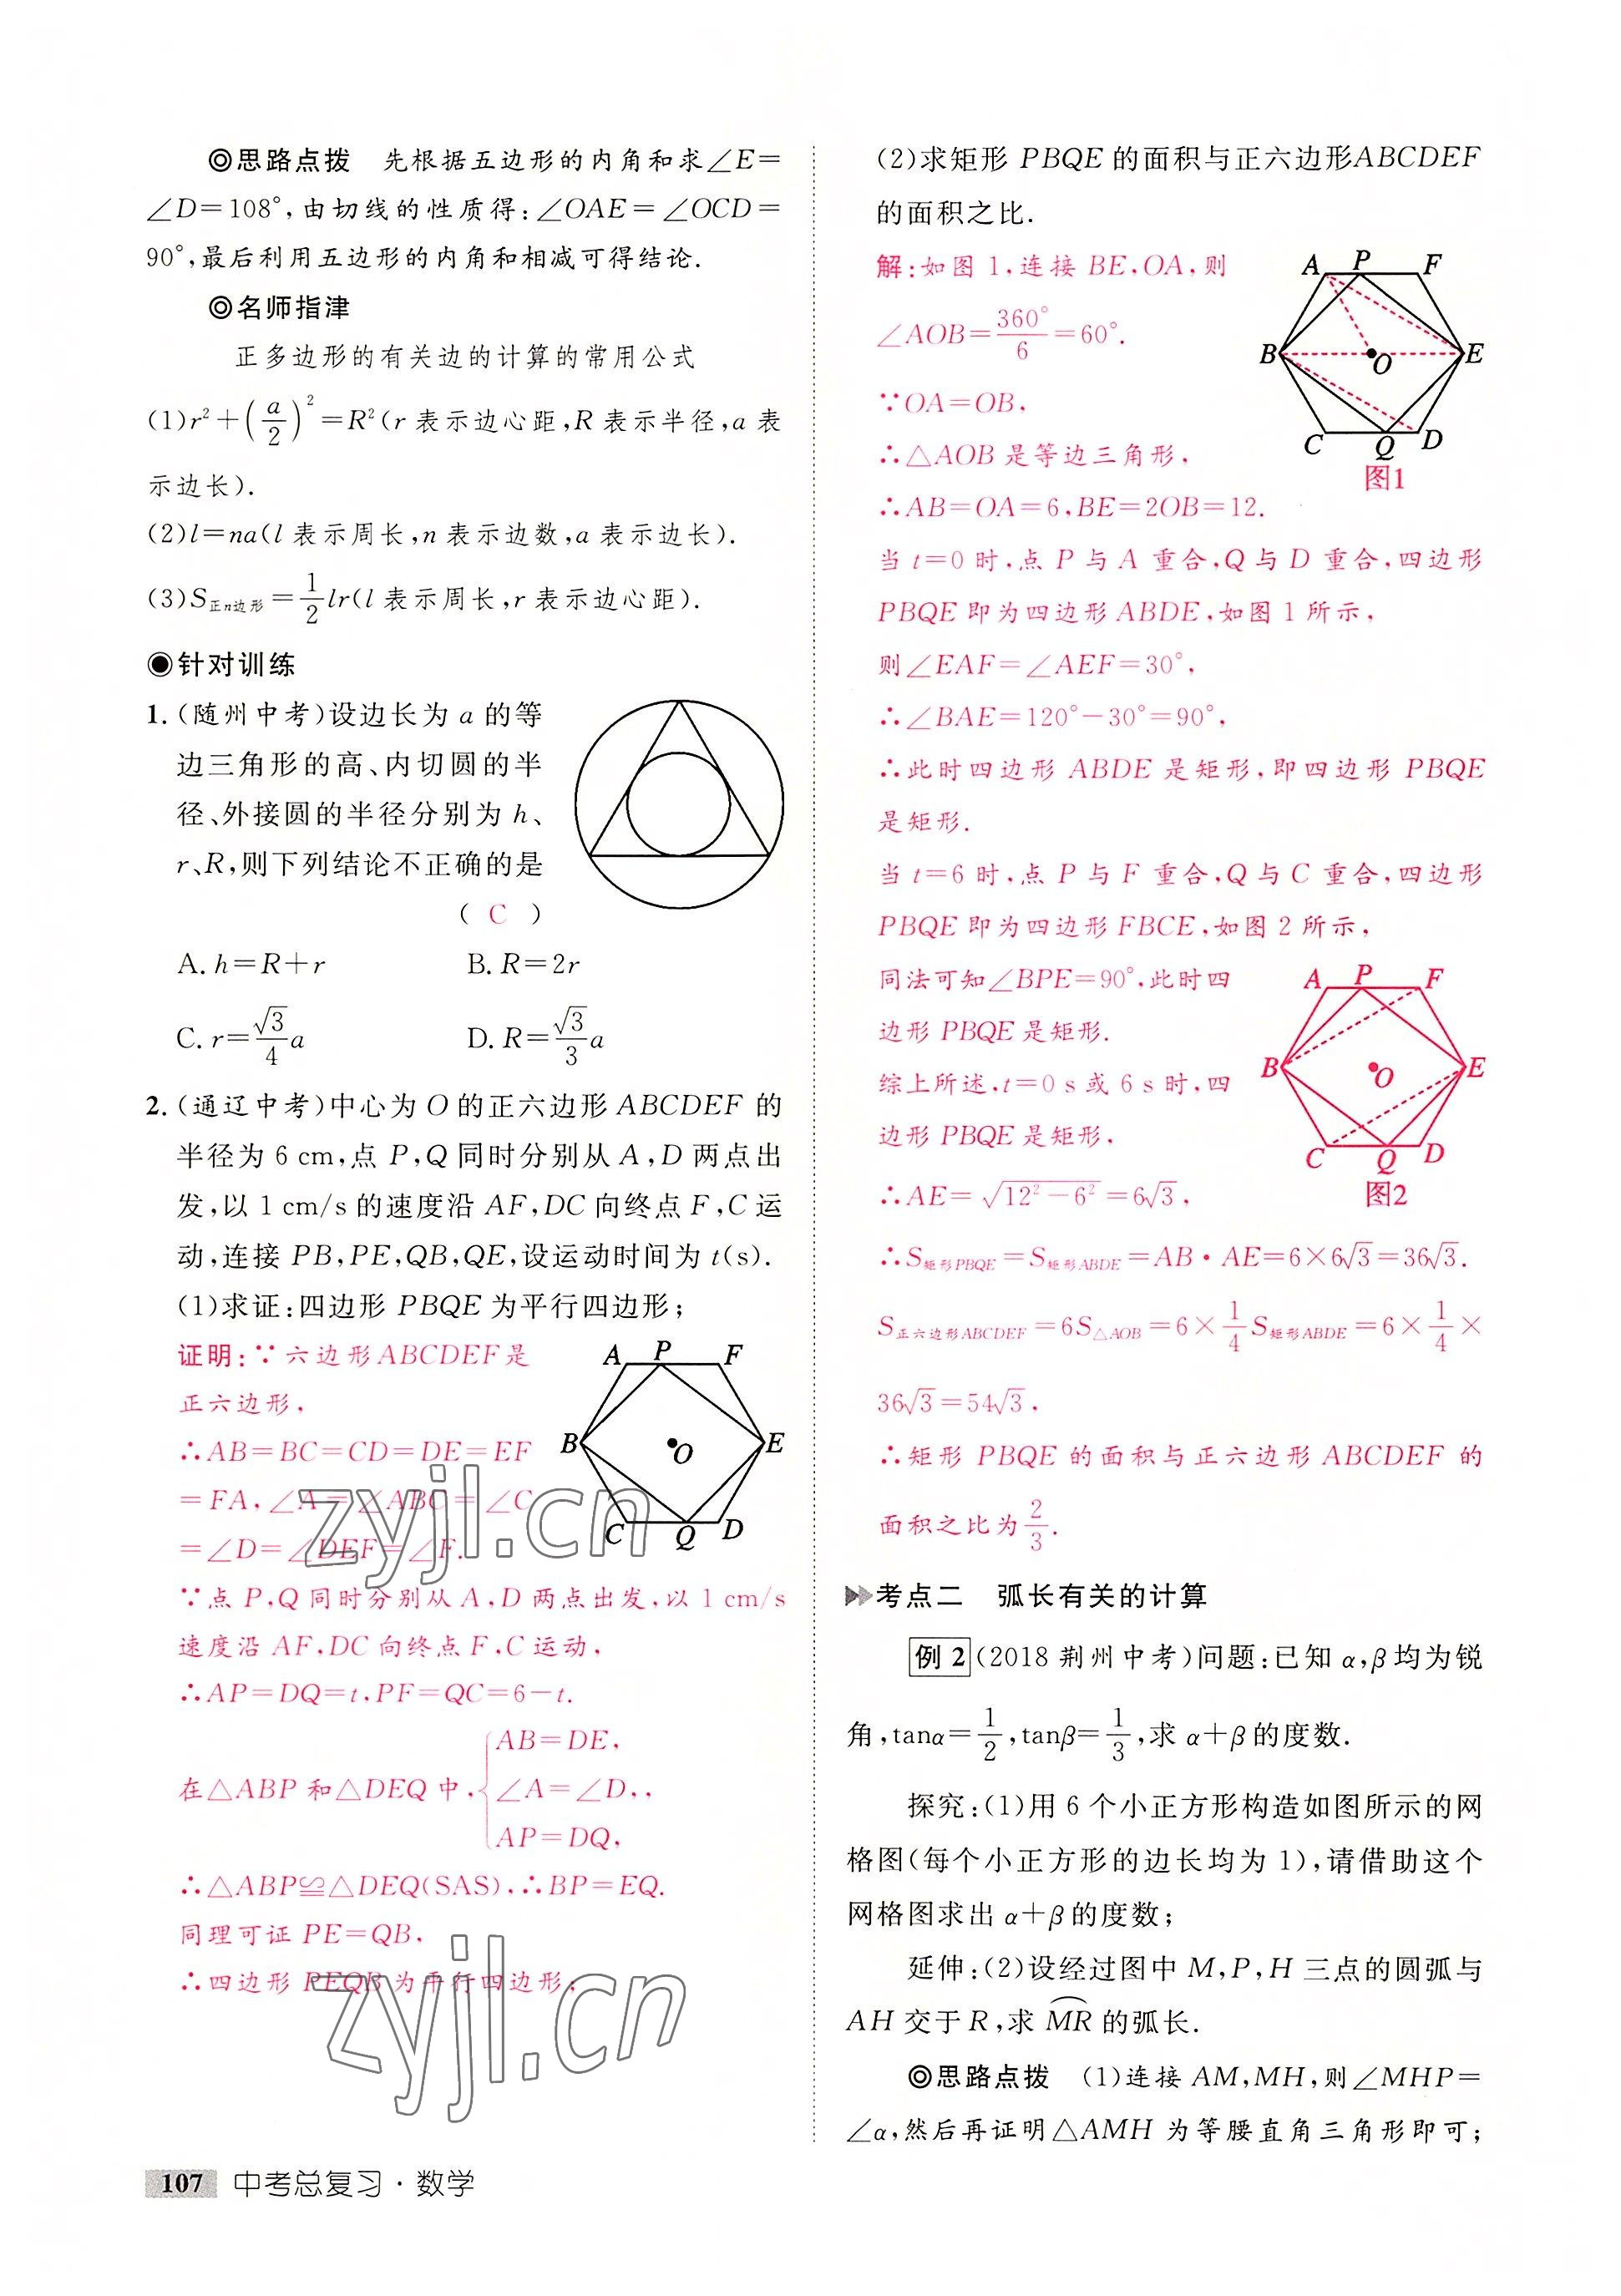 ◎思路点拨 先根据五边形的内角和求∠E=
∠D=108°,由切线的性质得:∠OAE=∠OCD=
90°,最后利用五边形的内角和相减可得结论.
◎名师指津
正多边形的有关边的计算的常用公式
(1)r²+(a/2)²=R²(r 表示边心距,R 表示半径,a 表
示边长).
(2)l=na(l 表示周长,n 表示边数,a 表示边长).
(3)S正n边形=1/2 lr(l 表示周长,r 表示边心距).
◉针对训练
1.(随州中考)设边长为 a 的等
边三角形的高、内切圆的半
径、外接圆的半径分别为 h、
r、R,则下列结论不正确的是
( C )
A. h=R+r B. R=2r
C. r=√3/4 a D. R=√3/3 a
2.(通辽中考)中心为 O 的正六边形 ABCDEF 的
半径为 6 cm,点 P,Q 同时分别从 A,D 两点出
发,以 1 cm/s 的速度沿 AF,DC 向终点 F,C 运
动,连接 PB,PE,QB,QE,设运动时间为 t(s).
(1)求证:四边形 PBQE 为平行四边形;
证明:∵六边形 ABCDEF 是
正六边形,
∴AB=BC=CD=DE=EF
=FA,∠A=∠ABC=∠C
=∠D=∠DEF=∠F.
A P F
B O E
C Q D
∵点 P,Q 同时分别从 A,D 两点出发,以 1 cm/s
速度沿 AF,DC 向终点 F,C 运动,
∴AP=DQ=t,PF=QC=6-t.
AB=DE,
在△ABP 和△DEQ 中,{∠A=∠D,,
AP=DQ,
∴△ABP≌△DEQ(SAS),∴BP=EQ.
同理可证 PE=QB,
∴四边形 PEQB 为平行四边形;
zyjl.cn
zyjl.cn
107 中考总复习·数学
(2)求矩形 PBQE 的面积与正六边形ABCDEF
的面积之比.
解:如图 1,连接 BE,OA,则
∠AOB=360°/6=60°.
∵OA=OB,
∴△AOB 是等边三角形,
∴AB=OA=6,BE=2OB=12.
A P F
B O E
C Q D
图1
当 t=0 时,点 P 与 A 重合,Q 与 D 重合,四边形
PBQE 即为四边形 ABDE,如图 1 所示,
则∠EAF=∠AEF=30°,
∴∠BAE=120°-30°=90°,
∴此时四边形 ABDE 是矩形,即四边形 PBQE
是矩形.
当 t=6 时,点 P 与 F 重合,Q 与 C 重合,四边形
PBQE 即为四边形 FBCE,如图 2 所示,
同法可知∠BPE=90°,此时四
边形 PBQE 是矩形.
综上所述,t=0 s 或 6 s 时,四
边形 PBQE 是矩形,
A P F
B O E
C Q D
图2
∴AE=√(12²-6²)=6√3,
∴S矩形PBQE=S矩形ABDE=AB·AE=6×6√3=36√3.
S正六边形ABCDEF=6S△AOB=6×1/4 S矩形ABDE=6×1/4×
36√3=54√3,
∴矩形 PBQE 的面积与正六边形 ABCDEF 的
面积之比为2/3.
考点二 弧长有关的计算
例 2 (2018 荆州中考)问题:已知 α,β均为锐
角,tanα=1/2,tanβ=1/3,求 α+β的度数.
探究:(1)用 6 个小正方形构造如图所示的网
格图(每个小正方形的边长均为 1),请借助这个
网格图求出 α+β的度数;
延伸:(2)设经过图中 M,P,H 三点的圆弧与
AH 交于 R,求 MR⌒ 的弧长.
◎思路点拨 (1)连接 AM,MH,则∠MHP=
∠α,然后再证明△AMH 为等腰直角三角形即可;